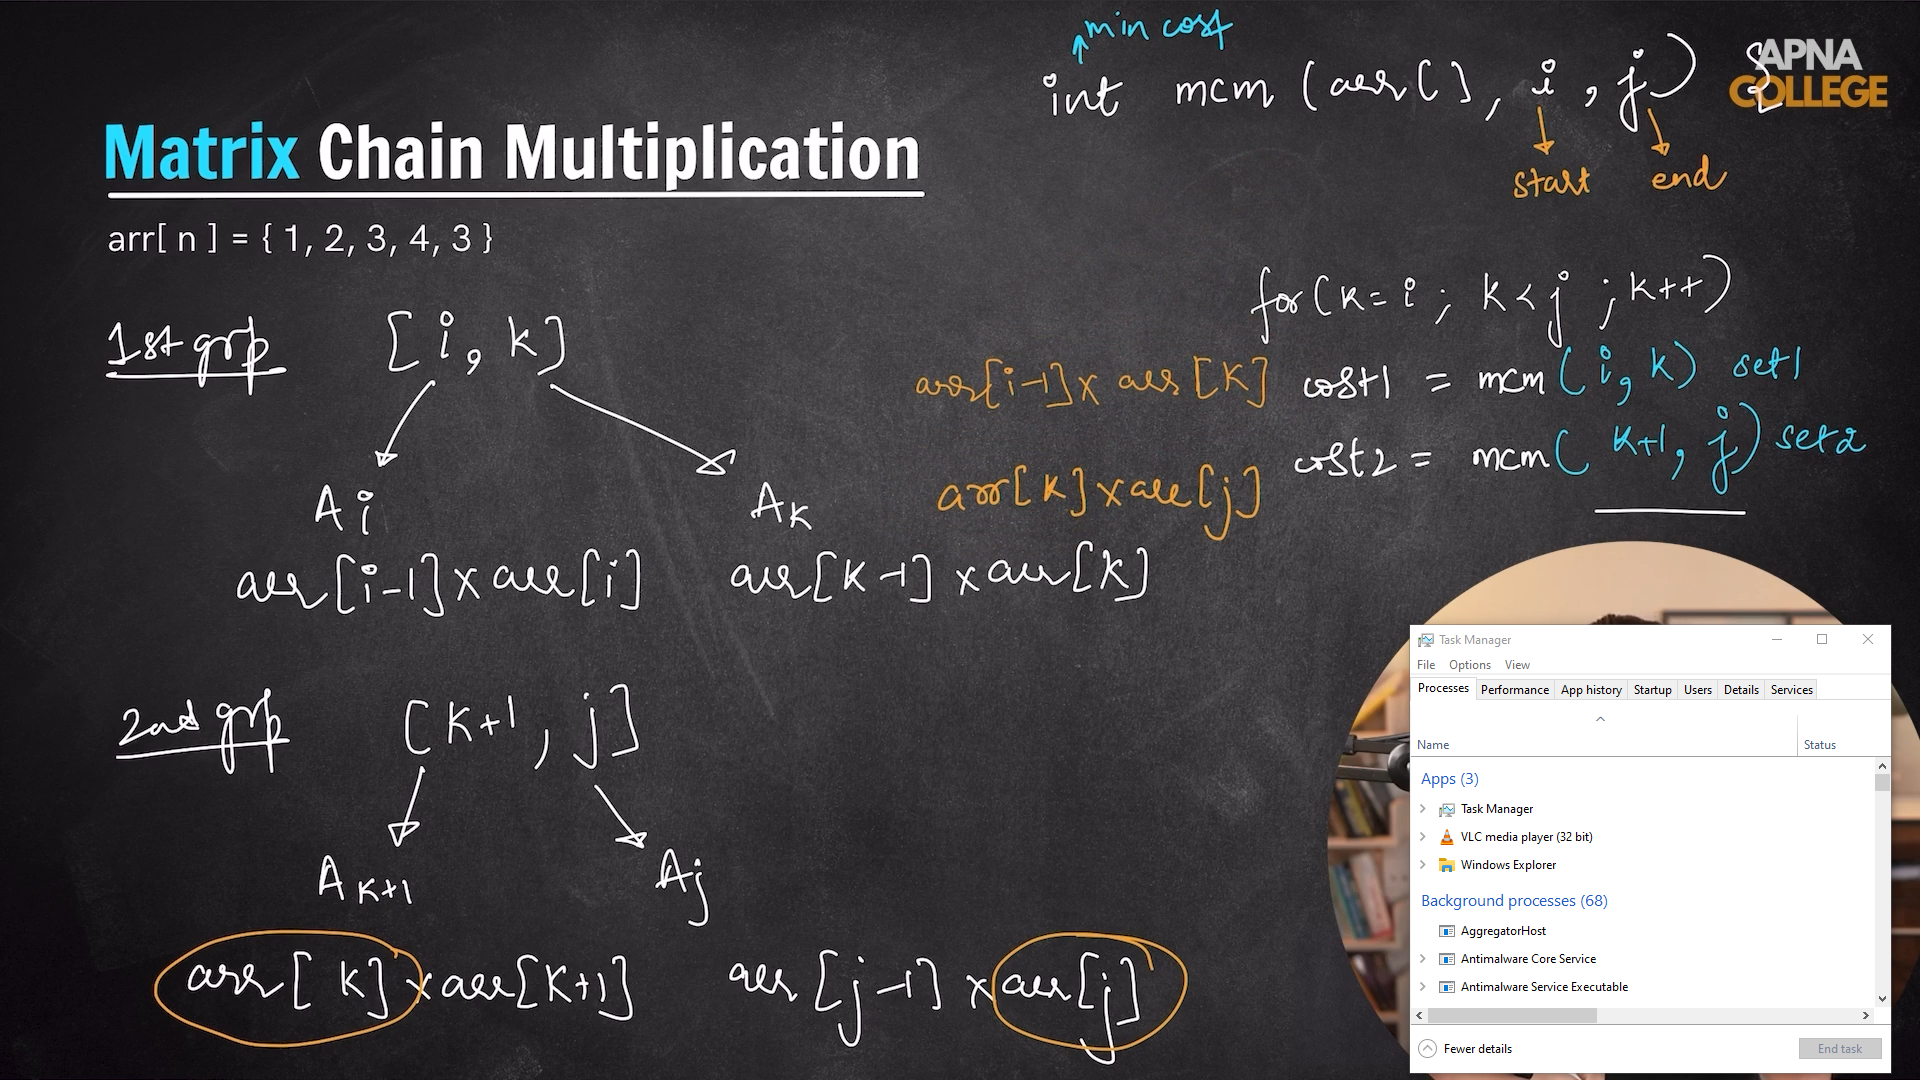 min cost
int mcm (arr[], i, j) {
start end
APNA
COLLEGE
Matrix Chain Multiplication
arr[ n ] = { 1, 2, 3, 4, 3 }
for(k = i ; k < j ; k++)
1st grp [i, k]
arr[i-1] x arr[k] cost1 = mcm (i, k) set1
cost2 = mcm( k+1, j) set2
arr[k] x arr[j]
Ai Ak
arr[i-1] x arr[i] arr[k-1] x arr[k]
2nd grp [k+1, j]
Ak+1 Aj
arr[ k] x arr[k+1] arr[j-1] x arr[j]
Task Manager
File Options View
Processes Performance App history Startup Users Details Services
Name Status
Apps (3)
Task Manager
VLC media player (32 bit)
Windows Explorer
Background processes (68)
AggregatorHost
Antimalware Core Service
Antimalware Service Executable
Fewer details End task